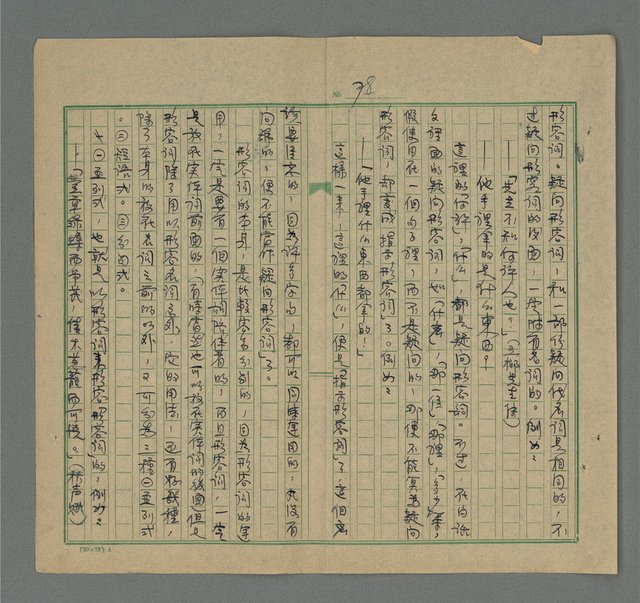 № 38
形容詞。疑問形容詞,和一部份疑問代名詞是相同的,不
過疑問形容詞的後面,一定附有名詞的。例如:
——「先生不知何許人也?」(五柳先生傳)
——他手裡拿的是什么東西?
這裡的「何許」,「什么」,都是疑問形容詞。不過,在白話
文裡面的疑問形容詞,如「什麼」,「那一位」「那裡」,「多少」等,
假使用在一個句子裡,而不是疑問的,那便不能算為疑問
形容詞,却變成指示形容詞了。例如:
——「他手裡什么東西都拿的!」
這樣一來,這裡的「什么」,便是「指示形容詞」了,這個應
該要注意的,因為許多字句,都可以同時運用的,尤沒有
向線的,便不能當作疑問形容詞」了。
形容詞的本身,是比較容易分別的,因為形容詞的運
用,一定是要有一個實体詞陪伴着的,而且形容詞,一定
是放在實体詞前面的,(有時當然也可以放在實体詞的後面)但是
形容詞除了用以形容名詞之外,它的用法,還有好幾種,
除了本身的放在名詞之前的以外,又可分為三種㊀並列式
。㊁短語式。㊂子句式。
㊀並列式,也就是以形容詞來形容形容詞的,例如:
——「豐草綠縟而爭茂,佳木葱蘢而可悅。」(秋声賦)
(20×25).A